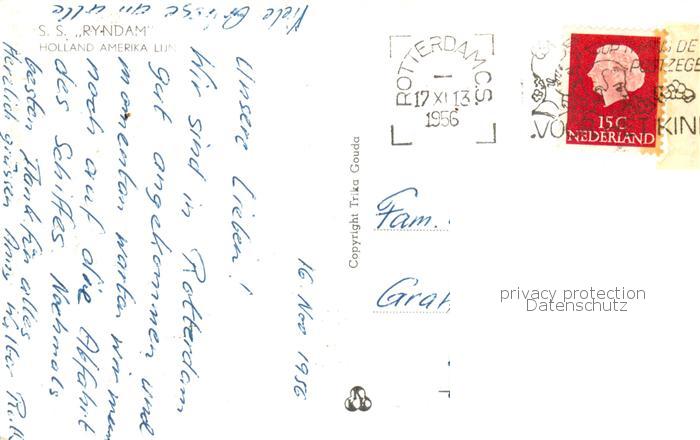 S.S. „RYNDAM"
HOLLAND AMERIKA LIJN
16. Nov 1956
Unsere Lieben!
Wir sind in Rotterdam
gut angekommen und
momentan warten wir
noch auf die Abfahrt
des Schiffes. Nochmals
besten Dank für alles
Herzlich grüssen
Viele Grüsse an alle
Copyright Trika Gouda
ROTTERDAM CS
I
17 XI 13
1956
POSTZEGE
VO
KIN
15 C
NEDERLAND
Fam.
Graf
privacy protection
Datenschutz